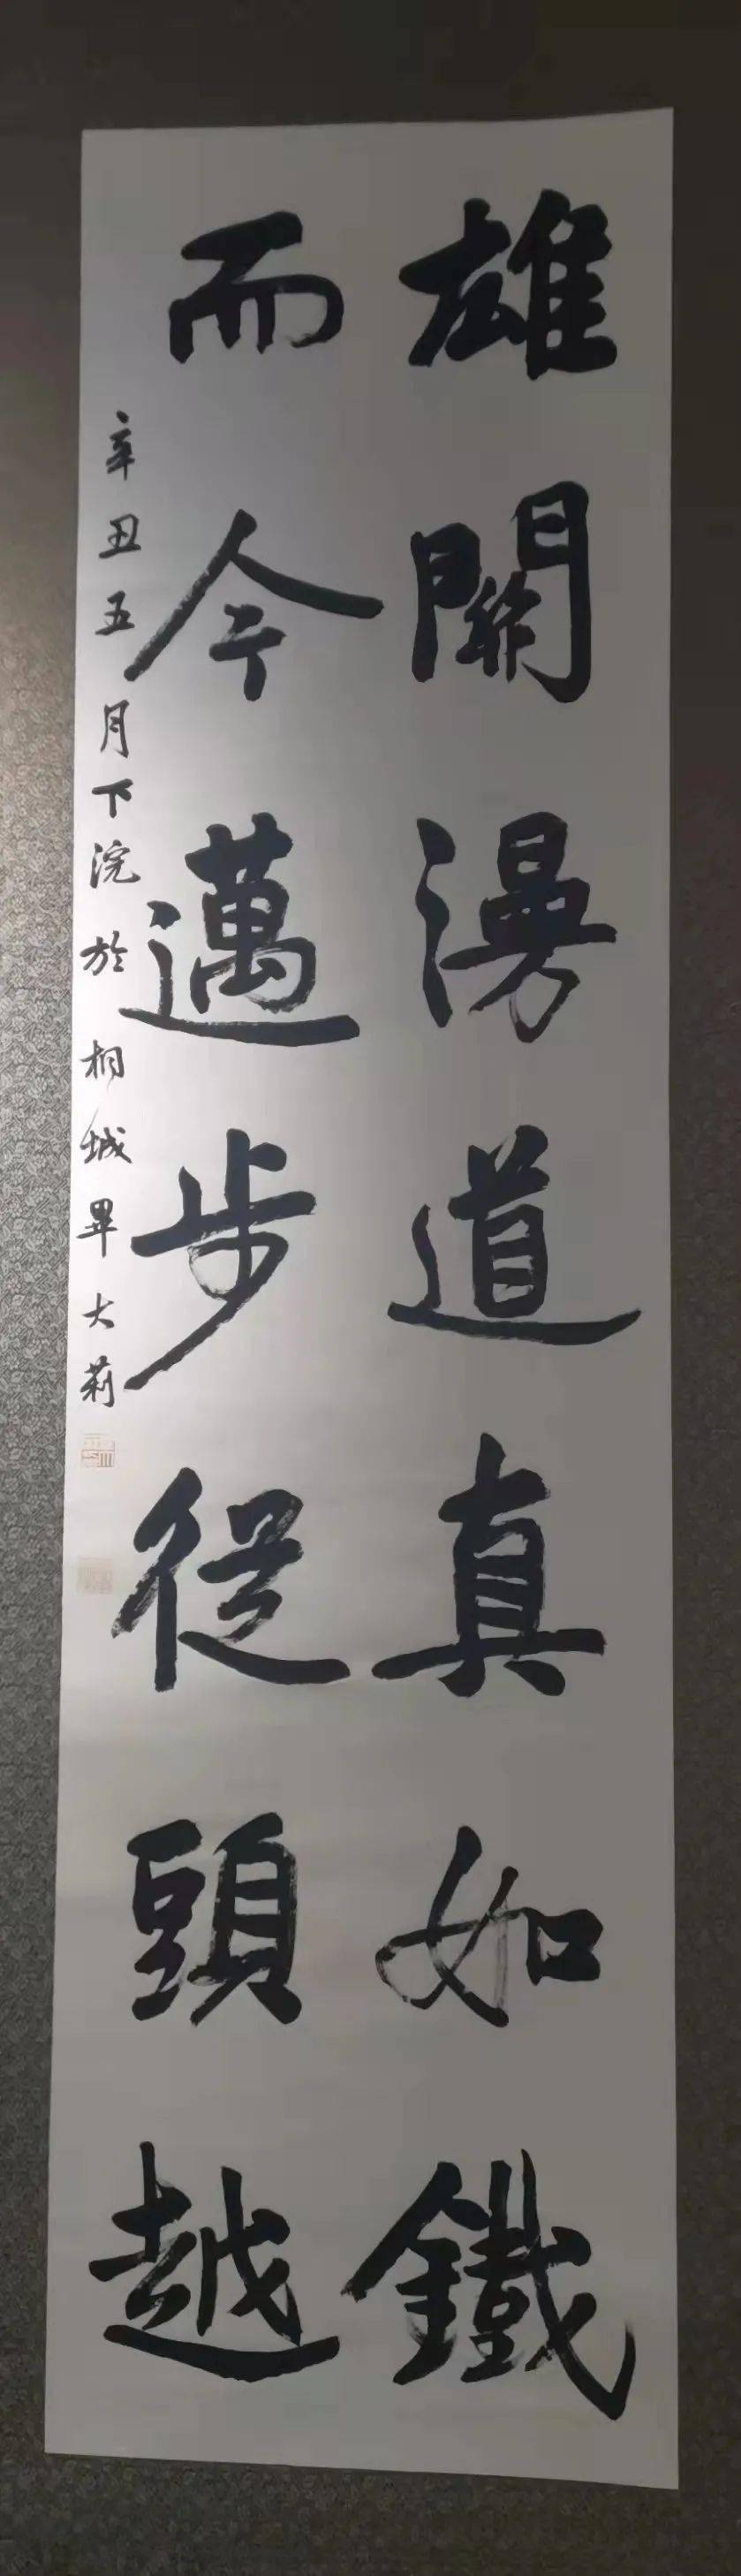 雄關漫道真如鐵
而今邁步從頭越
辛丑五月下浣於桐城畢大莉